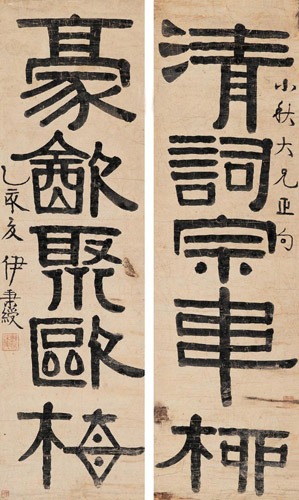 清詞宗車柳
小秋大兄正句
豪㱃聚歐梅
乙亥夏伊秉綬